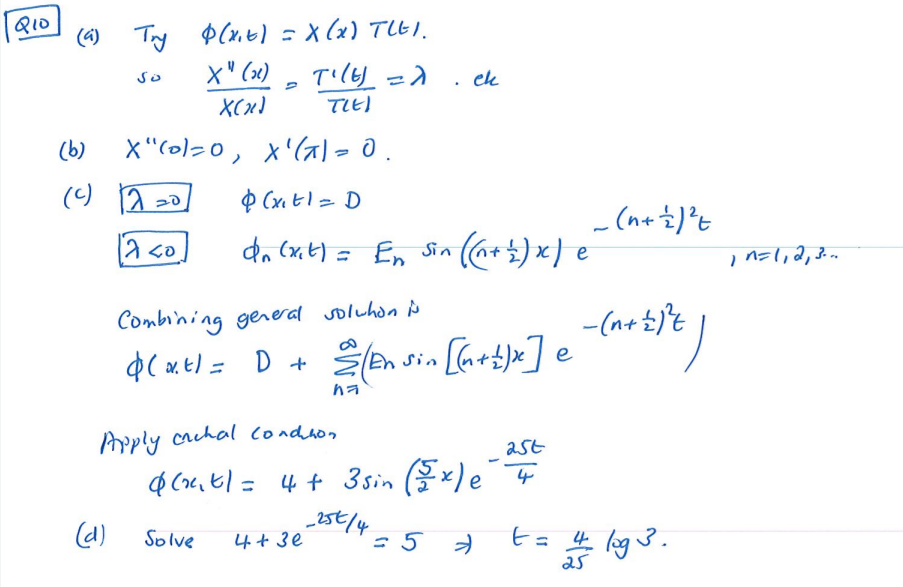 Q10
(a) Try ϕ(x,t) = X(x) T(t).
so X''(x)/X(x) = T'(t)/T(t) = λ . etc
(b) X''(0)=0, X'(π)=0.
(c) λ=0 ϕ(x,t) = D
λ<0 ϕₙ(x,t) = Eₙ sin((n+½)x) e^{-(n+½)²t} , n=1,2,3...
Combining general solution is
ϕ(x,t) = D + ∑_{n=1}^{∞} (Eₙ sin[(n+½)x] e^{-(n+½)²t})
Apply initial condition
ϕ(x,t) = 4 + 3sin(5/2 x) e^{-25t/4}
(d) Solve 4+3e^{-25t/4} = 5 ⇒ t = 4/25 log 3.